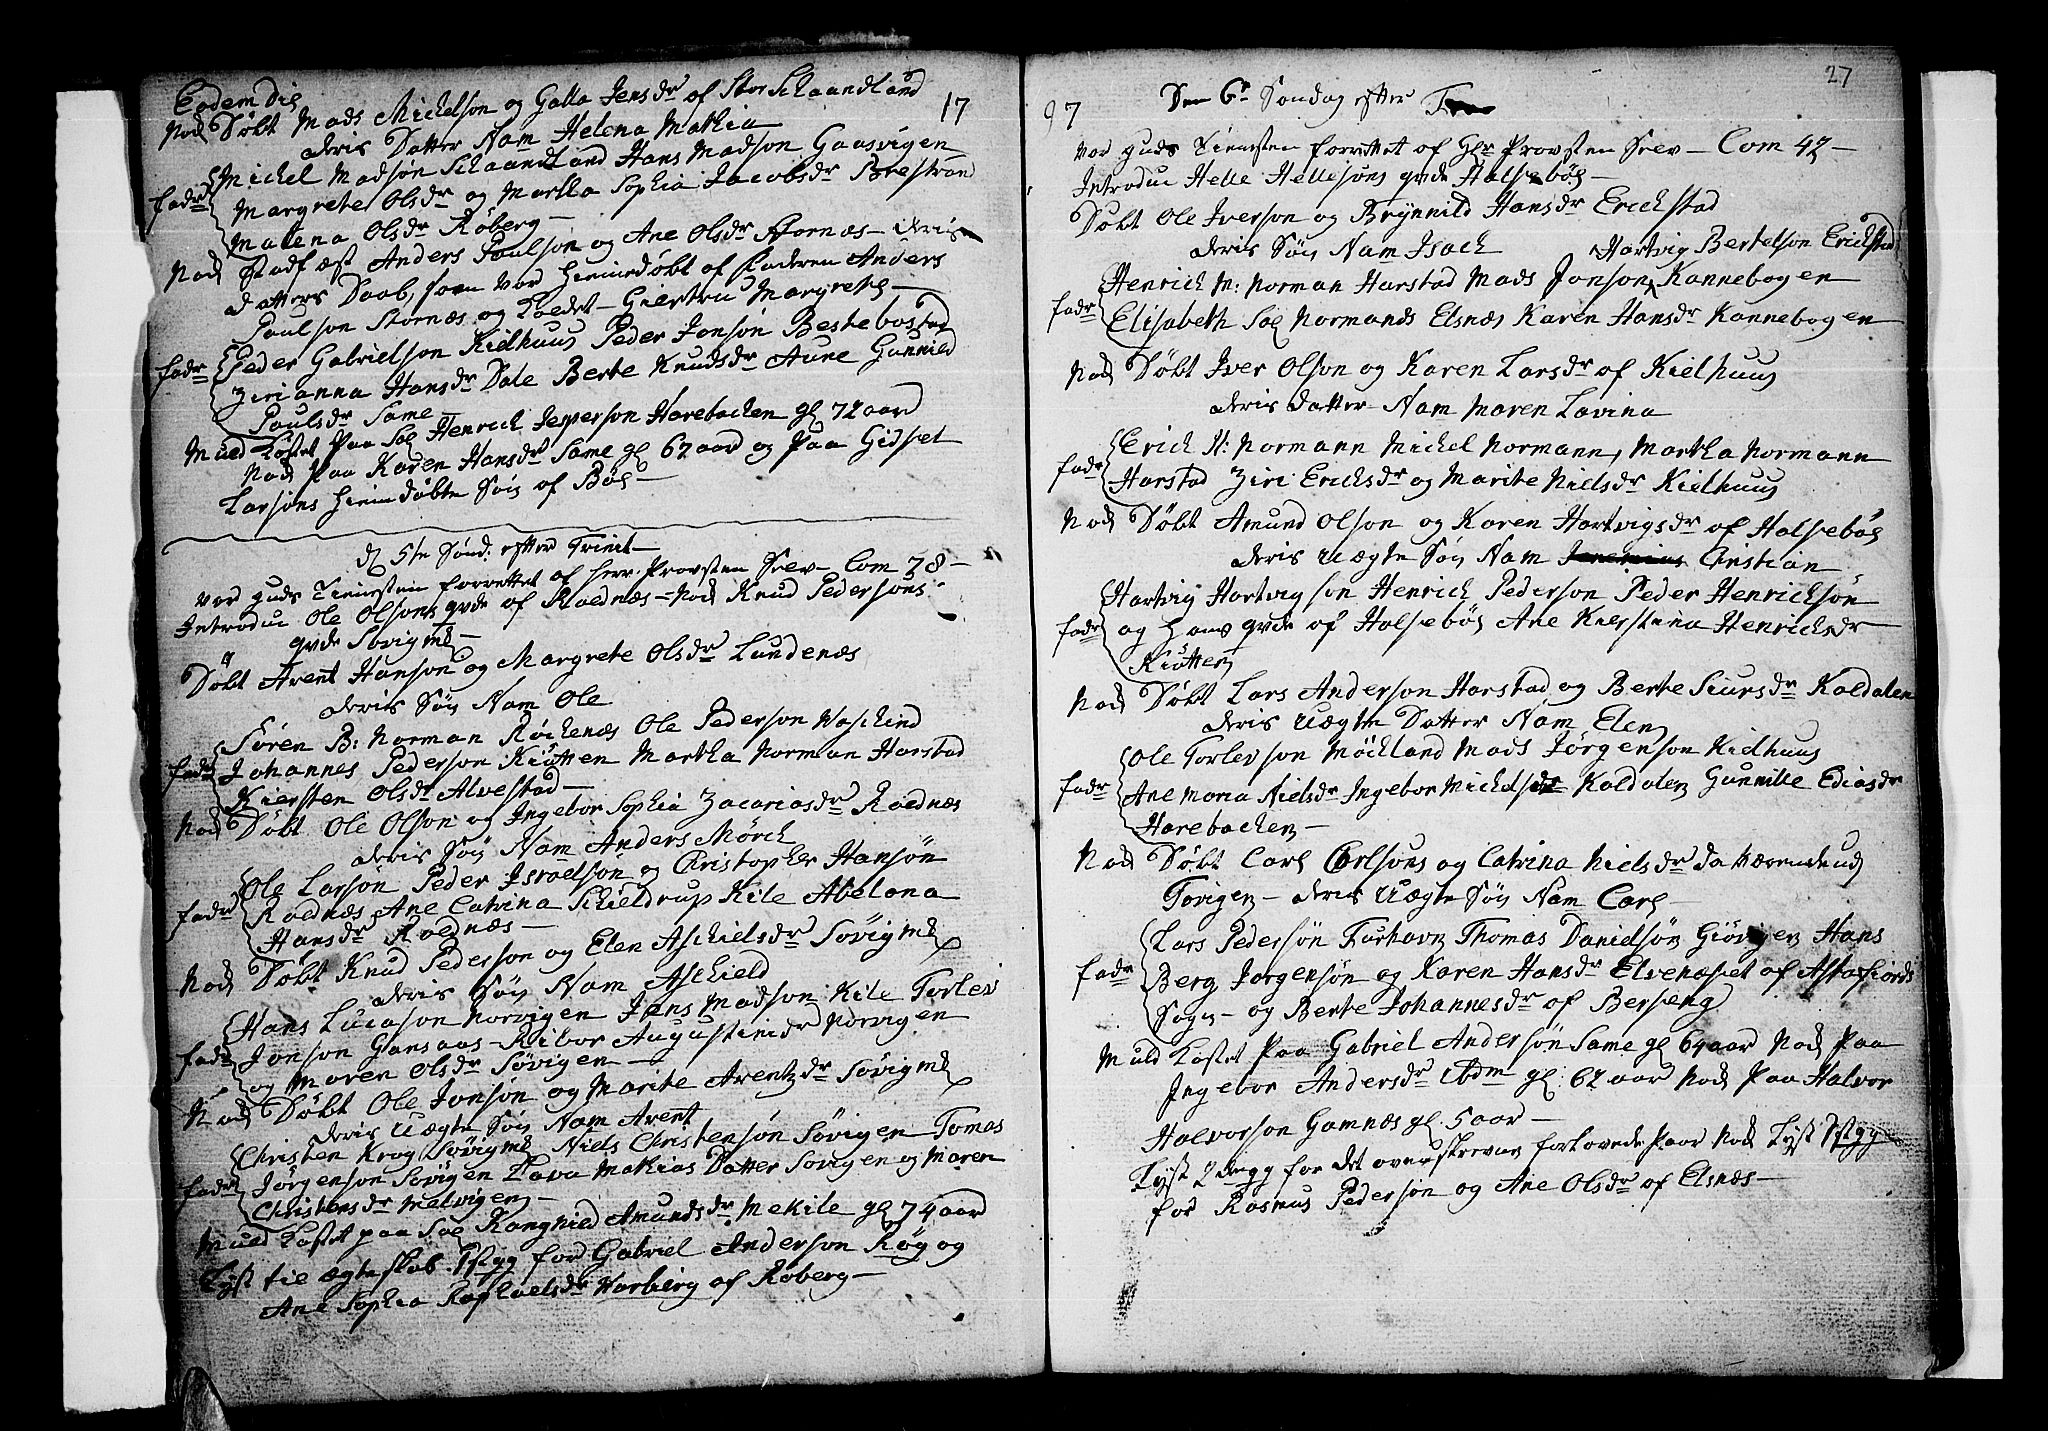 Eodem Die
Nok Døbt Mads Mickelson og Galla Jensdr af Stor Schaandland 17
deris Datter Nam Helena Mathia
Mickel Madsøn Schaandland Hans Madson Gaasvigen
fadr Margrete Olsdr og Martha Sophia Jacobsdr Brestrand
Malena Olsdr Røberg —
Nok stadfæst Anders Paulson og Ane Olsdr Stornæs — deris
datters Daab, som var hiemedøbt af Faderen Anders
Paulson Stornæs og kaldet — Giertru Margrethe —
fadr Peder Gabrielson Kielhuus Peder Jonsøn Bestebostad
Zirianna Hansdr Dale Berte Knudsdr Aune Gunnild
Paulsdr Same —
Muld kastet Paa Sal Henrich Jesperson Harebacken gl 72 aar
Nok Paa Karen Hansdr Same gl 67 aar og Paa Gidset
Larsøns hiemdøbte Søn af Bøe —
D 5te Sønd. efter Trinit —
var guds Tienesten forrettet af herr Provsten Srev — Com 78 —
Introdu Ole Olsons qvde af Roednæs — Nok Knud Pedersons
qvde Søvigme —
Døbt Arent Hanson og Margrete Olsdr Lundenæs
deris Søn Nam Ole
Søren B: Norman Røckenæs Ole Pederson Waschind
fadr Johannes Pederson Kiøtten Martha Norman Harstad
Kiersten Olsdr Alvestad —
Nok Døbt Ole Olson og Ingebor Sophia Zacariasdr Roednæs
deris Søn Nam Anders Mørch
Ole Larsøn Peder Israelson og Christopher Hansøn
fadr Roednæs Ane Catrina Schieldrup Kile Abelona
Hansdr Roednæs —
Nok Døbt Knud Pederson og Elen Aschielsdr Søvigme
deris Søn Nam Aschield
Hans Lucason Norvigen Jens Madson Kile Torlev
fadr Jonson Gansaas — Ribor Augustinidr Norvigen
og Maren Olsdr Søvigen —
Nok Døbt Ole Jonsøn og Marite Arentzdr Søvigme
deris Uægte Søn Nam Arent
Christen Krog Søvigme Niels Christensøn Søvigen Tomas
fadr Jørgenson Søvigen Lava Mathias Datter Søvigen og Maren
Christensdr Melvigen —
Muld kastet paa Sal Ranghild Amundsdr Mekile gl 74 aar
Lyst til ægteskab 1st gg for Gabriel Anderson Røg og
Ane Sophia Raphaelsdr Warberg af Røberg —
27
97 Den 6te Søndag efter
var guds Tienesten forrettet af Hr Provsten Srev — Com 42 —
Introdu Helle Hellesøns qvde Halsebøe —
Døbt Ole Iverson og Brynnild Hansdr Erickstad
deris Søn Nam Isach Hartvig Bertelson Erickstad
Henrich M: Norman Harstad Mads Jonson Kannebogen
fadr Elisabeth Sal Normands Elsnæs Karen Hansdr Kannebogen
Nok Døbt Iver Olson og Karen Larsdr af Kielhuus
deris datter Nam Maren Lavina
Erich N: Normann Mickel Normann, Martha Normann
fadr Harstad Ziri Ericksdr og Marite Nielsdr Kielhuus
Nok Døbt Amund Olson og Karen Hartvigsdr af Halsebøe
deris Uægte Søn Nam Christian
Hartvig Hartvigson Henrich Pederson Peder Henricksøn
fadr og Hans qvde af Halsebøe Ane Kierstina Henricksdr
Kiøtten
Nok Døbt Lars Anderson Harstad og Berte Siursdr Kaldalen
deris Uægte Datter Nam Elen
Ole Torlevson Møckland Mads Jørgenson Kielhuus
fadr Ane Maria Nielsdr Ingebor Mickelsdr Kaldalen Gunnille Ediasdr
Harebacken —
Nok Døbt Carl Carlsons og Catrina Nielsdr da værende ud
Tovigen — deris Uægte Søn Nam Carl —
Lars Pedersøn Furhavn Thomas Danielsøn Giøvigen Hans
fadr Berg Jørgensøn og Karen Hansdr Elvenæset af Astafiords
Sogn — og Berte Johannesdr af Berseng
Muld kastet Paa Gabriel Andersøn Same gl 64 aar Nok Paa
Ingebor Andersdr Ibdm gl: 62 aar Nok Paa Halvor
Halvorson Gamnæs gl. 5 aar —
Lyst 2den gg for det ovenskrevne forlovede paar Nok Lyst 1st gg
for Rasmus Pedersøn og Ane Olsdr af Elsnæs —